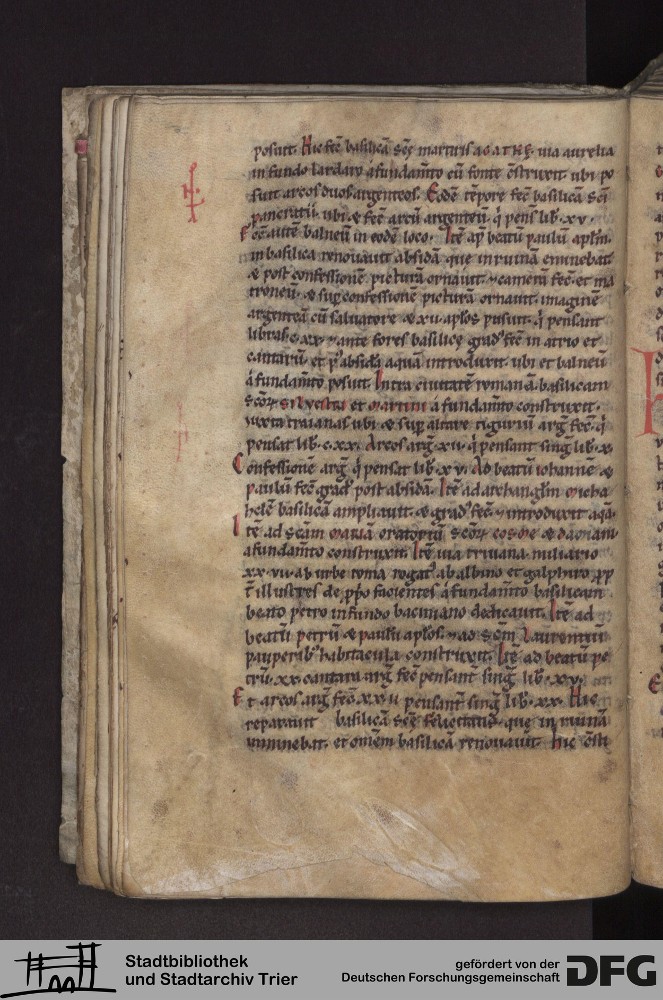 posuit. Hic fec̄ basilicā sc̄ę martiris agatħę. uia aurelia
in fundo lardario a fundam̄to cū fonte ōstruxit. ubi po
suit arcos duos argenteos. Eodē tēpore fec̄ basilicā sc̄i
pancratii. ubi & fec̄ arcū argenteū. q̄ pens̄ lib̄. xv.
Fec̄ autē balneū in eodē loco. Itē ap̄ beatū paulū apl̄m.
in basilica renouauit absidā. que in ruinā eminebat
& post confessionē picturā ornauit. & camerā fec̄. et ma
troneū. & sup̄ confessionē picturā ornauit. imaginē
argenteā cū saluatore & xii. apl̄os posuit. q̄ pensant
libras. c.xx. & ante fores basilicę grad᷒ fec̄ in atrio et
cantarū. et p᷒ absidā aquā introduxit. ubi et balneū
a fundam̄to posuit. Intra ciuitatē romanā. basilicam
sc̄oꝝ siluestri et martini a fundam̄to construxit.
iuxta traianas ubi & sup̄ altare tiguriū arḡ. fec̄. q̄
pensat lib̄. c.xx. Arcos arḡ. xii. q̄ pensant singl̄. lib̄. x.
Confessionē arḡ. q̄ pensat lib̄. xv. Ad beatū iohannē &
paulū fec̄ grad᷒ post absidā. Itē ad archangl̄m micha
helē basilicā ampliauit. & grad᷒ fec̄. & introduxit aq̄ā.
Itē ad sc̄am mariā oratoriū sc̄oꝝ cosme & damiani
a fundam̄to construxit. Itē uia triuana. miliario
xx.vii. ab urbe roma rogat᷒ ab albino et galphiro p̄p
t̄ illustres de p̄p̄o facientes a fundam̄to basilicam
beato petro in fundo bacuiano dedicauit. Itē ad
beatū petrū & paulū apl̄os. & ad sc̄m Laurentiū
pauperib᷒ habitacula construxit. Itē ad beatū pe
trū. xx. cantara arḡ. fec̄ pensant̄ singl̄. lib̄. xv.
Et arcos arḡ. fec̄. xx.ii. pensant̄ singl̄. lib̄. xx. Hic
reparauit basilicā sc̄ę felicitatis. que in ruinā
imminebat. et om̄em basilicā renouauit. Hic ōsti
Stadtbibliothek
und Stadtarchiv Trier
gefördert von der
Deutschen Forschungsgemeinschaft
DFG